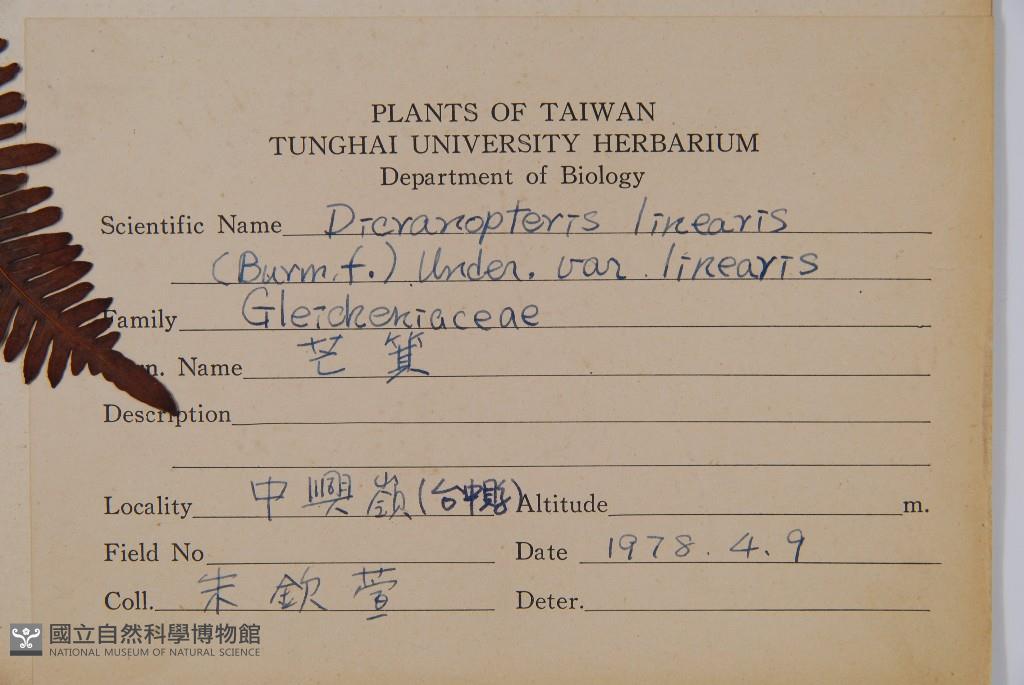 PLANTS OF TAIWAN
TUNGHAI UNIVERSITY HERBARIUM
Department of Biology
Scientific Name Dicranopteris linearis
(Burm.f.) Under. var. linearis
Family Gleicheniaceae
n. Name 芒萁
Description
Locality 中興嶺(台中縣) Altitude m.
Field No Date 1978.4.9
Coll. 朱欽萱 Deter.
國立自然科學博物館
NATIONAL MUSEUM OF NATURAL SCIENCE